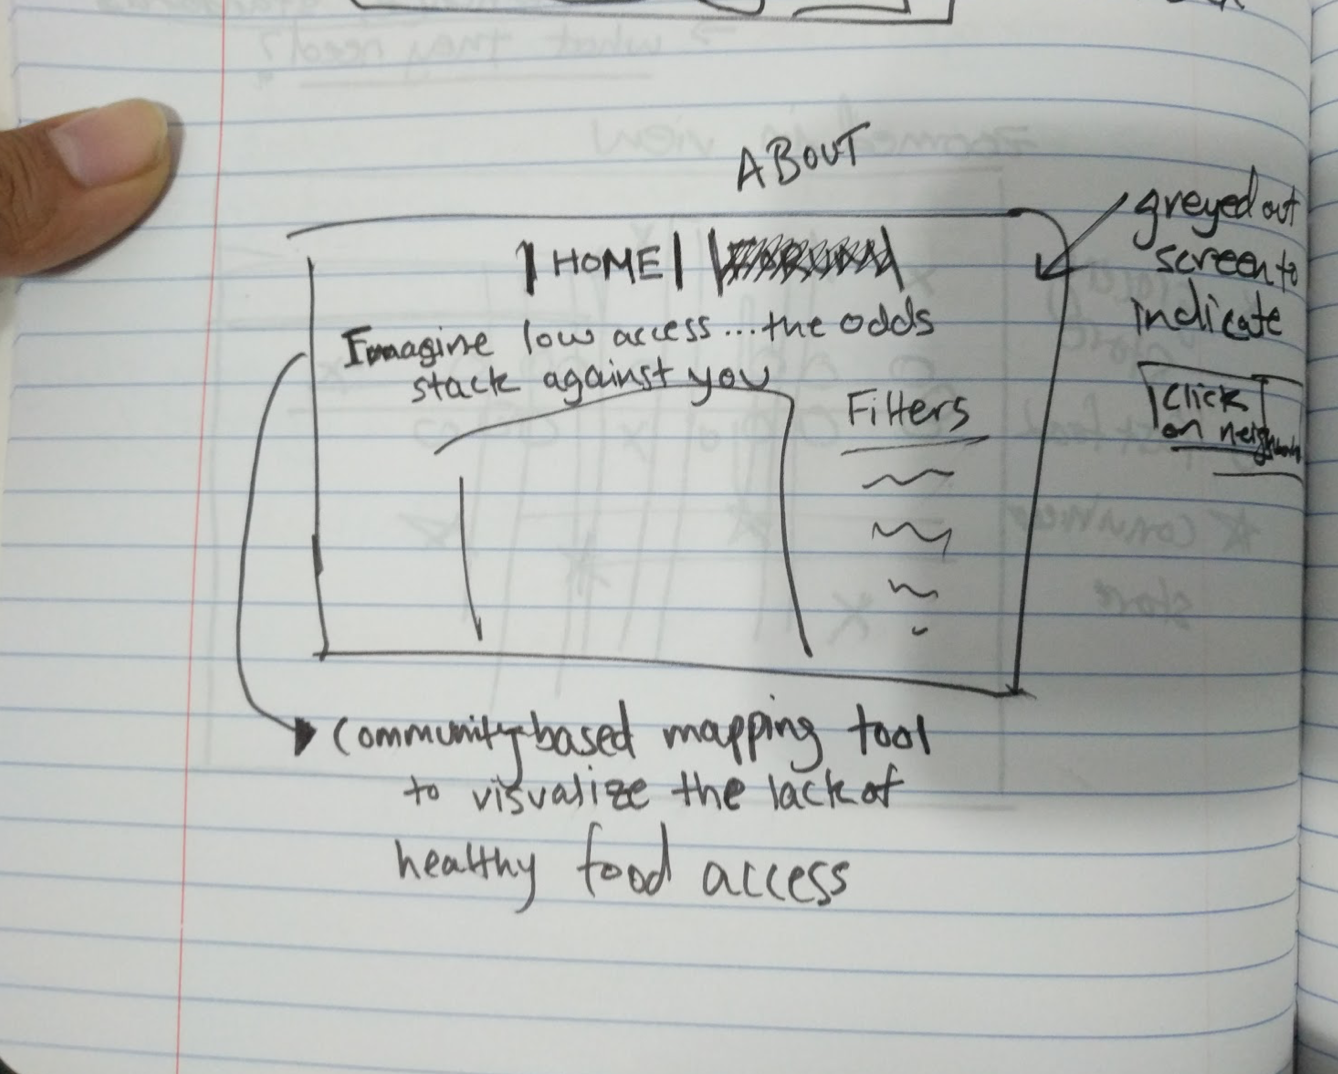 ABOUT
HOME
Imagine low access...the odds
stack against you
Filters
greyed out
screen to
indicate
Click
on
Community based mapping tool
to visualize the lack of
healthy food access